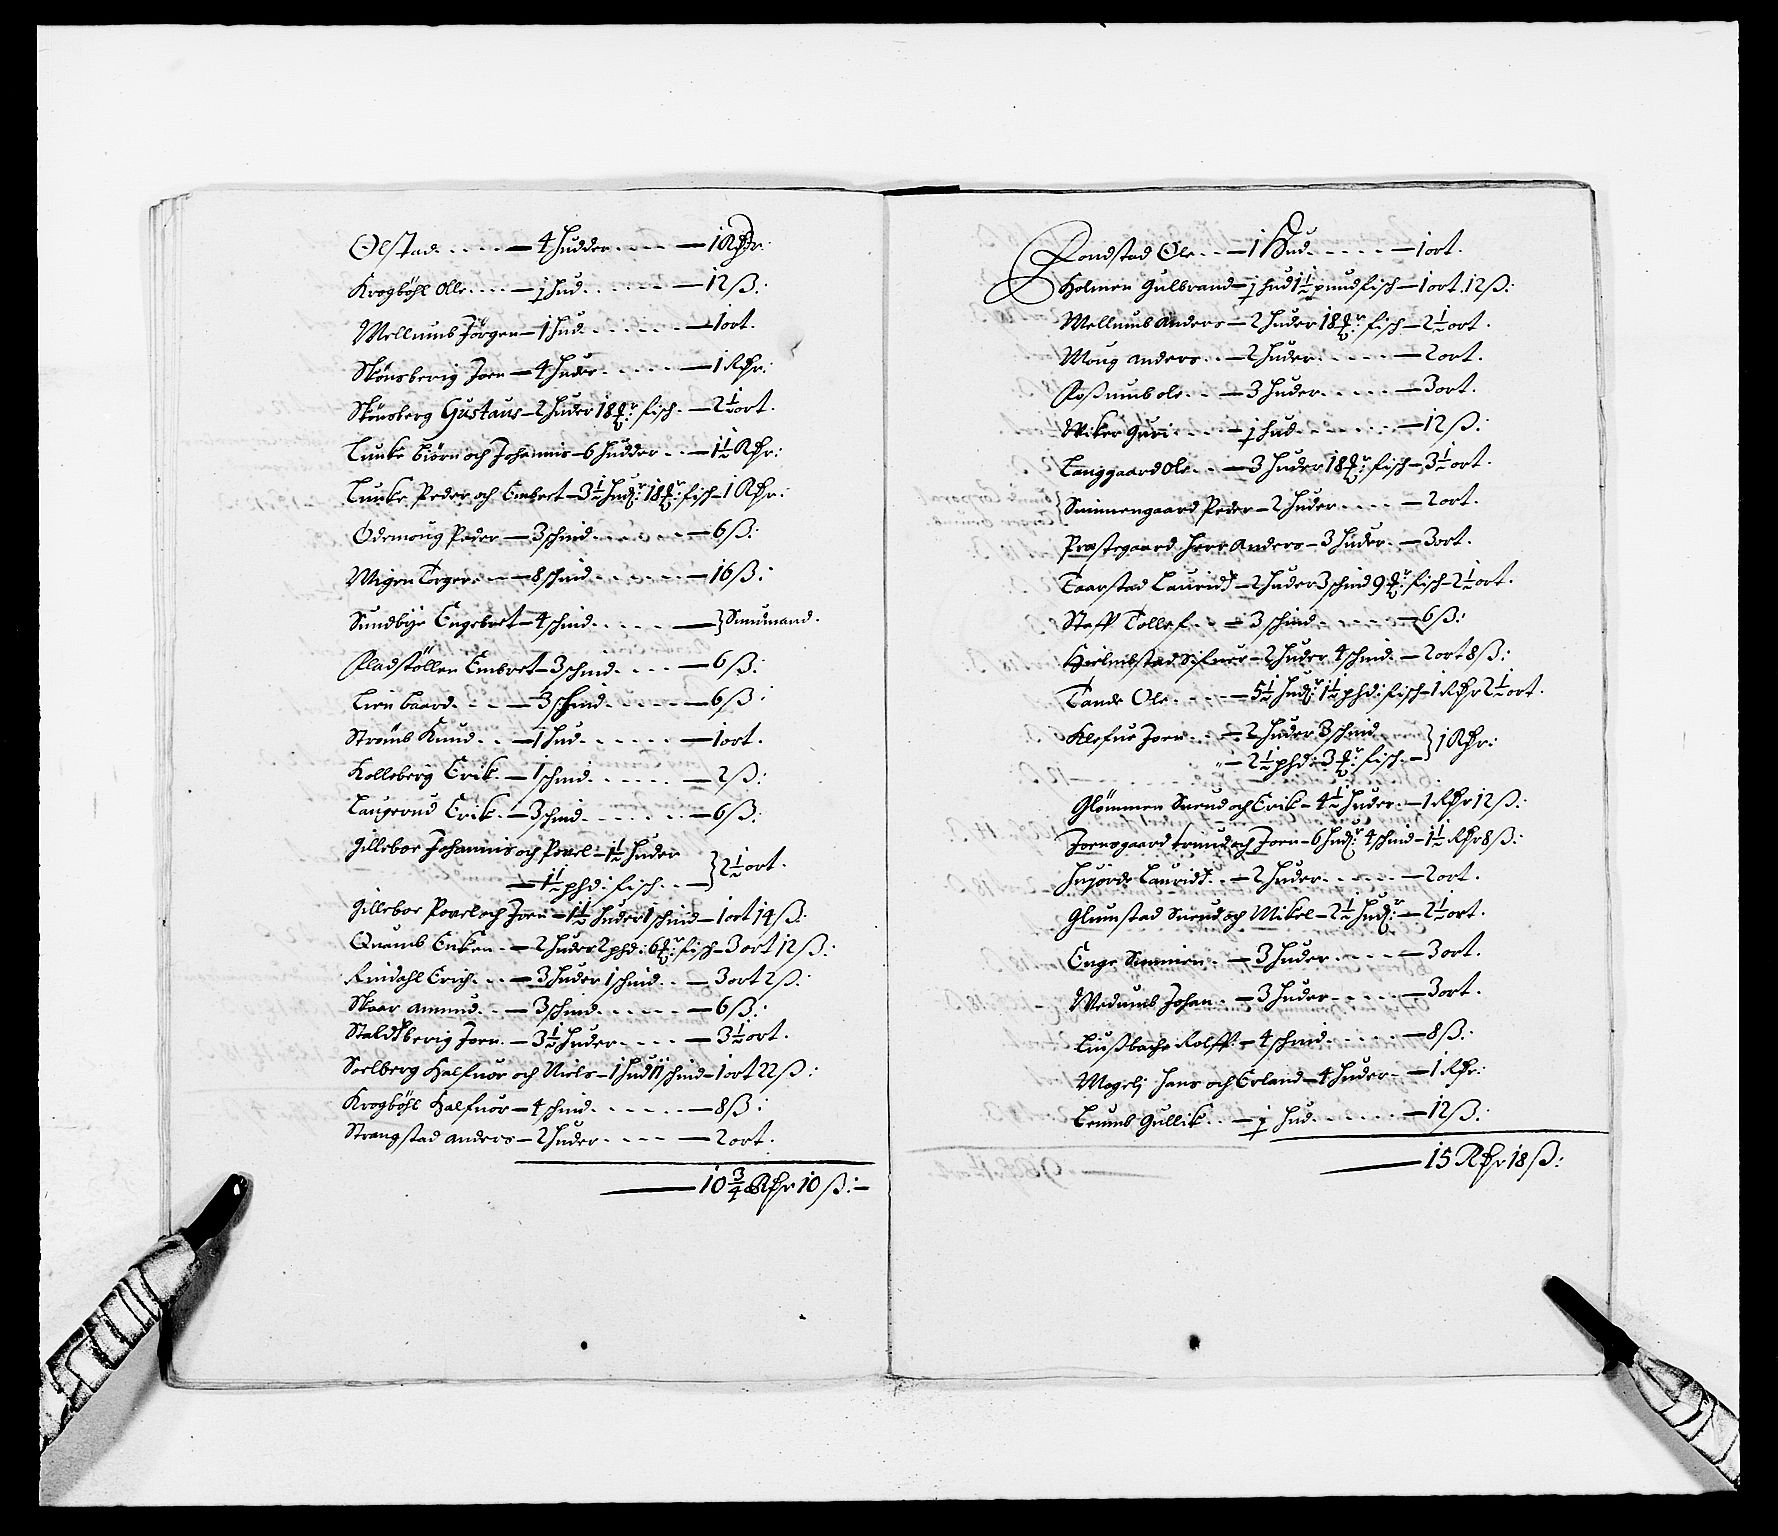 Ølstad. - - - — 4 Hudder. - - - — 1 Rdr:
Krogböhl Olle. - - - — ½ Hud. - - - — 12 ß:
Mellumb Jörgen — 1 Hud. - - - — 1 ort.
Skönsberig Joen — 4 Huder - - - — 1 Rdr:
Skönsberg Gustaus — 2 Huder 18 fisch. — 2½ ort.
Lunke Biörn och Johannis — 6 Hudder - - — 1½ Rdr:
Lunke Peder och Embret — 3½ Hud: 18 fisch — 1 Rdr:
Odemoug Peder — 3 schind. - - - — 6 ß:
Wigen Torger. - — 8 schind - - - — 16 ß:
Sundbye Engebret — 4 schind. - - - — } Smumand.
Fladstöllen Embret — 3 schind. - - - — 6 ß:
Lien Baard. - - — 3 schind. - - - — 6 ß:
Strömb Knud. - - — 1 Hud. - - - — 1 ort.
Kolleberg Erik. — 1 schind. - - - — 2 ß:
Laugerud Erik. — 3 schind. - - - — 6 ß:
Gilleboe Johannis och Povel — 1½ Huder
— 1½ phd: fisch. - - — } 2½ ort.
Gilleboe Povel och Joen — 1½ Huder 1 schind — 1 ort 14 ß:
Quamb Enken. — 2 Huder 2 phd: 6 fisch — 3 ort 12 ß:
Rindahl Erich. - - — 3 Huder 1 schind. - - — 3 ort 2 ß:
Skaar Amund. - — 3 schind. - - - — 6 ß:
Staldsberig Joen. — 3½ Huder. - - - — 3½ ort.
Soelberg Halfuor och Niels — 1 Hud 11 schind — 1 ort 22 ß:
Krogböhl Halfuor — 4 schind. - - - — 8 ß:
Strangstad Anders — 2 Huder - - - — 2 ort.
— 10 ¾ Rdr 10 ß:—
Rondstad Ole. - — 1 Hud. - - - — 1 ort.
Holmen Gulbrand — ½ Hud 1½ pund fisch — 1 ort 12 ß:
Mellumb Anders — 2 Huder 18 fisch — 2½ ort.
Moug Anders. - — 2 Huder. - - - — 2 ort.
Roßumb Ole. - — 3 Huder. - - - — 3 ort.
Wiker Guri. - - - — ½ Hud. - - - — 12 ß:
Langgaard Ole. - — 3 Huder 18 fisch — 3½ ort.
Swinnengaard Peder — 2 Huder. - - - — 2 ort.
Præstegaard Herr Anders — 3 Huder. — 3 ort.
Taarstad Lauridt — 2 Huder 3 schind 9 fisch — 2½ ort.
Staff Tollef. - — 3 schind. - - - — 6 ß:
Hielmbstad Sifuer — 2 Huder 4 schind. — 2 ort 8 ß:
Tande Ole. - - - — 5½ Hud: 1½ phd: fisch — 1 Rdr 2½ ort.
Klefue Joen. - - — 2 Huder 3 schind
— 2½ phd: 3 fisch. — } 1 Rdr:
Glömmen Suend och Erik — 4½ Huder. — 1 Rdr 12 ß:
Forrsgaard Trund och Joen — 6 Hud: 4 schind — 1½ Rdr 8 ß:
Hujorde Lauridt. - — 2 Huder. - - - — 2 ort.
Glumstad Suend och Mikel — 2½ Hud: — 2½ ort.
Enge Simmen. - — 3 Huder. - - - — 3 ort.
Wedumb Johan. - — 3 Huder. - - - — 3 ort.
Liußbache Rolff: — 4 schind. - - - — 8 ß:
Mogelj Hans och Erland — 4 Huder. — 1 Rdr:
Leumb Gullik. - - — ½ Hud. - - - — 12 ß:
— 15 Rdr 18 ß: